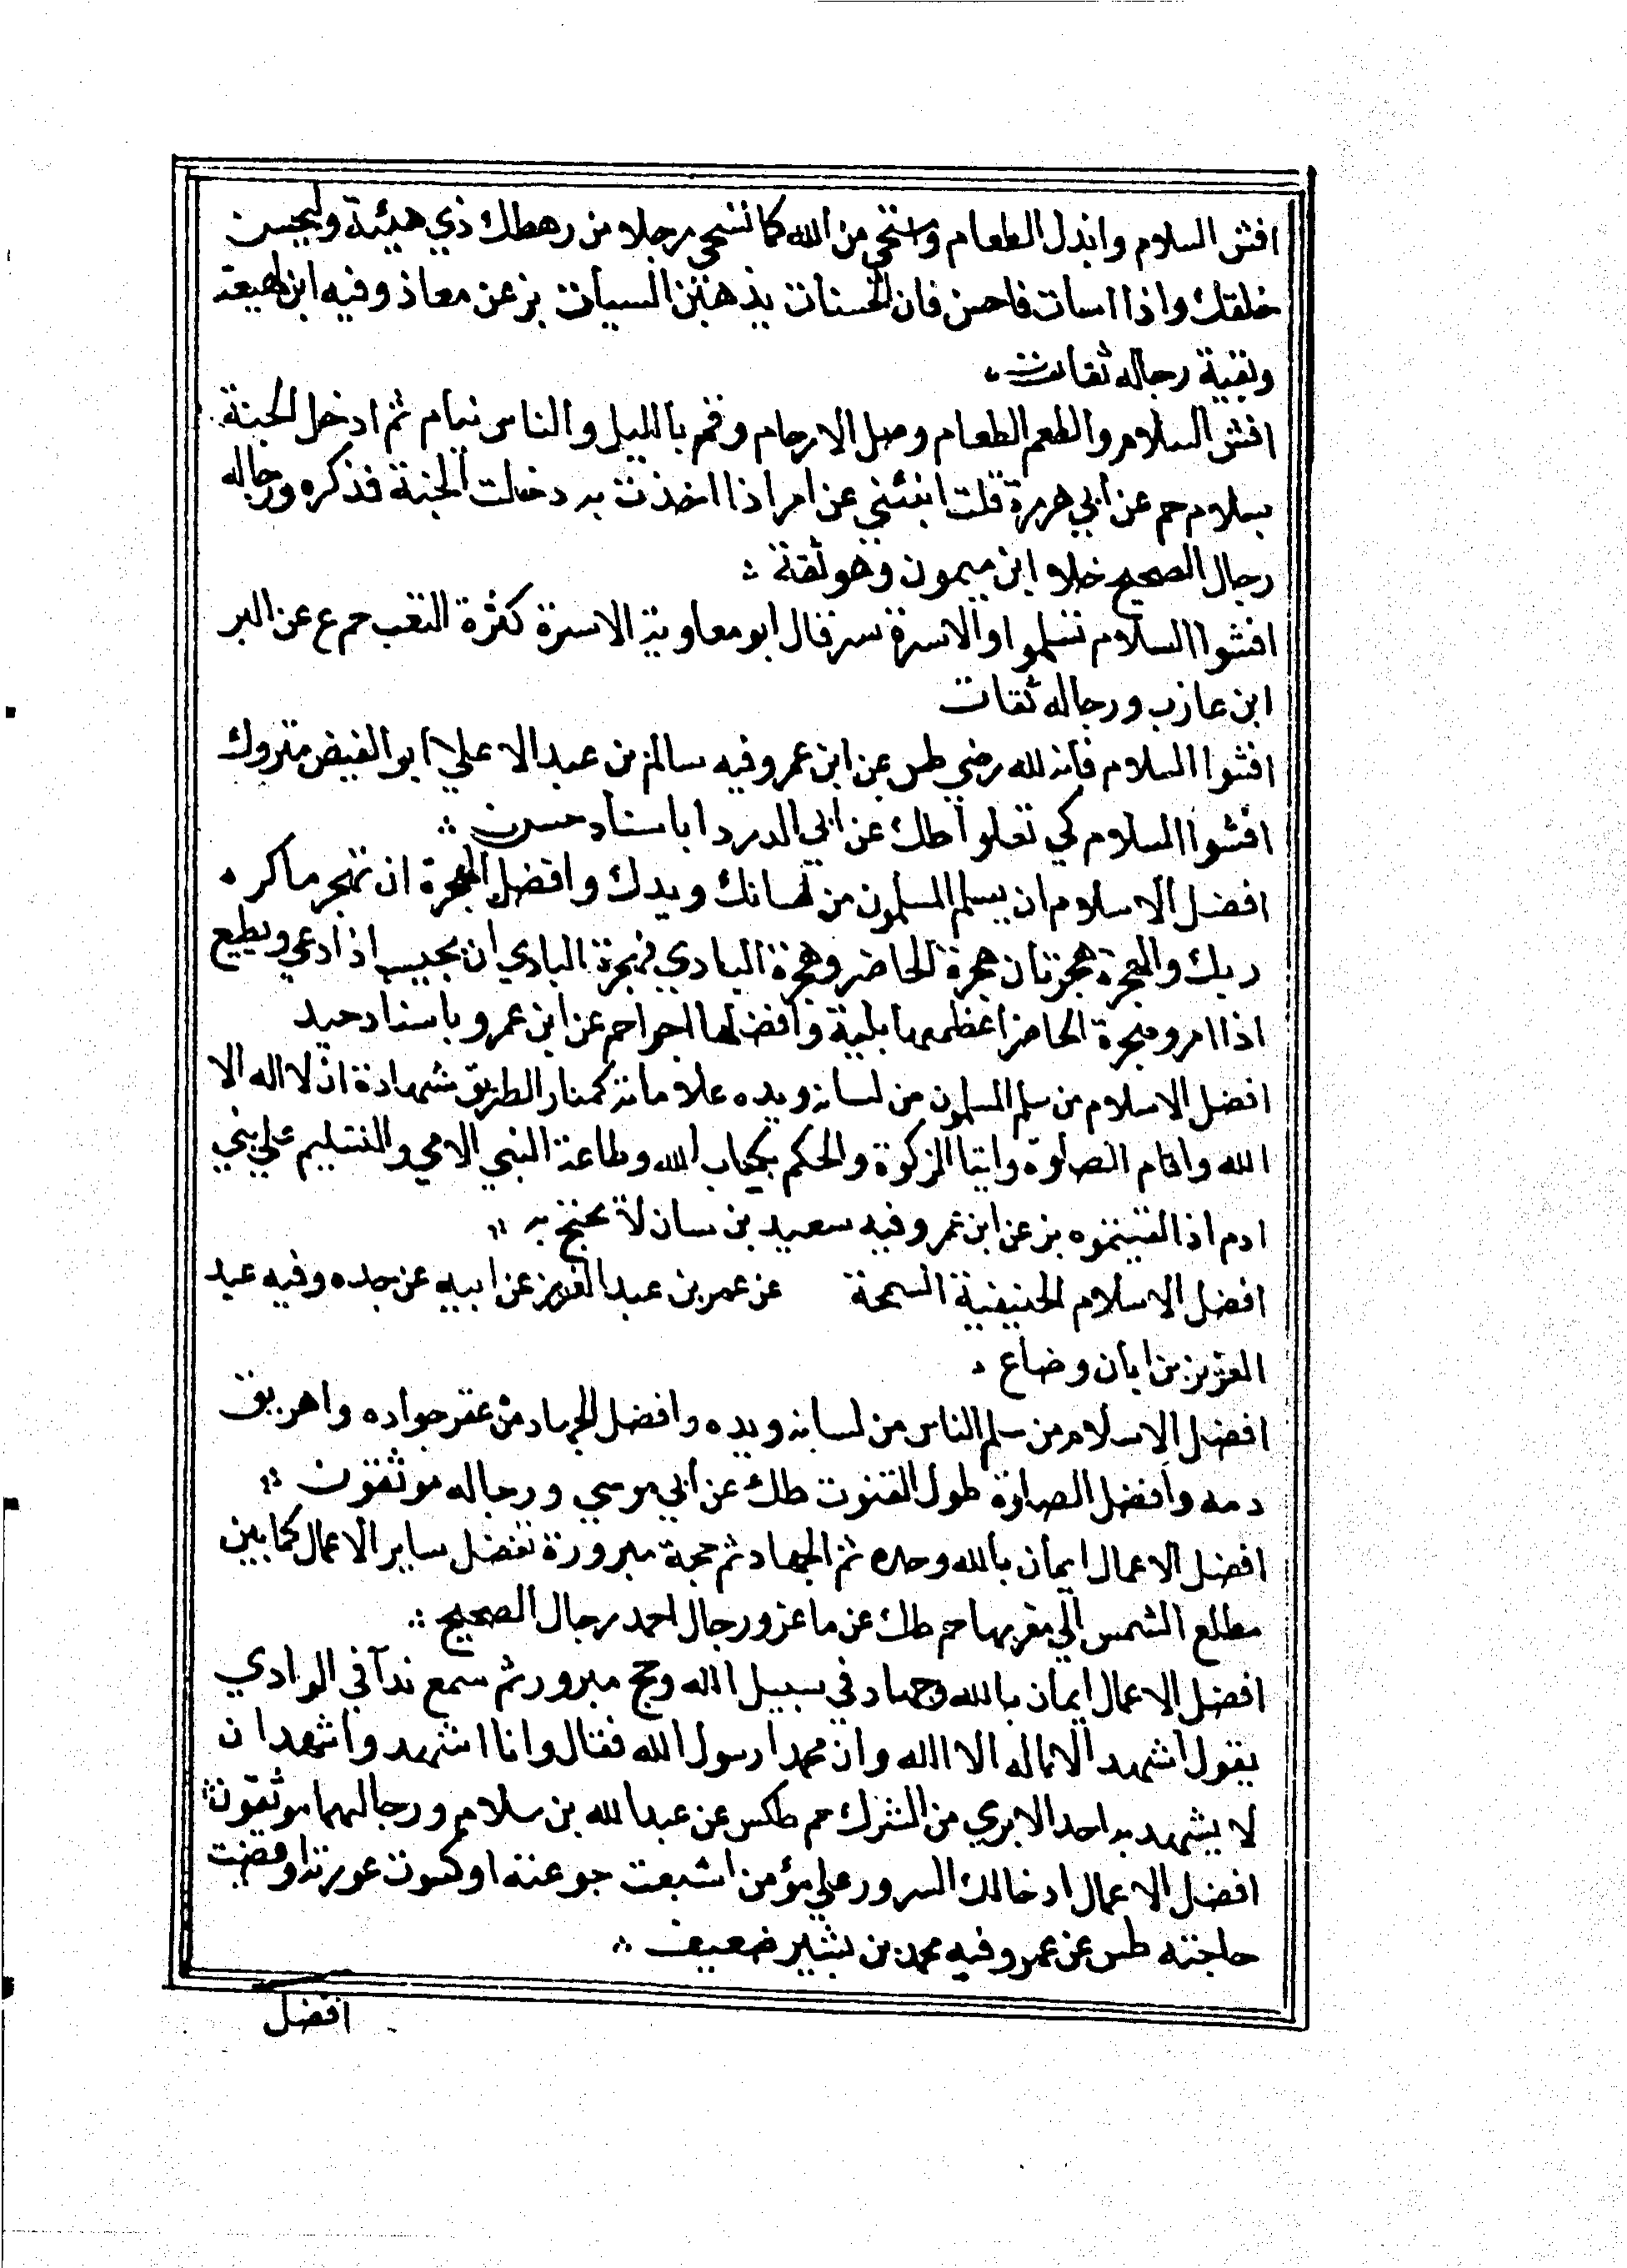 افش السلام وابذل الطعام واستحي من الله كما تستحي رجلا من رهطك ذي هيئة وليحسن
خلقك واذا اسات فاحسن فان الحسنات يذهبن السيات بز عن معاذ وفيه ابن لهيعة
وبقية رجاله ثقات
افش السلام واطعم الطعام وصل الارحام وقم بالليل والناس نيام ثم ادخل الجنة
بسلام حم عن ابي هريرة قلت انبئني عن امر اذا اخذت به دخلت الجنة فذكره ورجاله
رجال الصحيح خلا ابن ميمون وهو ثقة
افشوا السلام تسلموا والاسرة سر قال ابو معاوية الاسرة كثرة التعب حم ع عن البر
ابن عازب ورجاله ثقات
افشوا السلام فانه لله رضي طس عن ابن عمر وفيه سالم بن عبد الاعلي ابو الفيض متروك
افشوا السلام كي تعلوا طك عن ابي الدردا باسناد حسن
افضل الاسلام ان يسلم المسلمون من لسانك ويدك وافضل الهجرة ان تهجر ما كره
ربك والهجرة هجرتان هجرة الحاضر وهجرة البادي فهجرة البادي ان يجيب اذا دعي ويطيع
اذا امر وهجرة الحاضر اعظمهما بلية وافضلها اجرا حم عن ابن عمرو باسناد جيد
افضل الاسلام من سلم المسلمون من لسانه ويده علاماته كمنار الطريق شهادة ان لا اله الا
الله واقام الصلوة وايتا الزكوة والحكم بكتاب الله وطاعة النبي الامي والتسليم علي بني
ادم اذا لقيتموه بز عن ابن عمر وفيه سعيد بن سنان لا يحتج به
افضل الاسلام الحنيفية السمحة عن عمر بن عبد العزيز عن ابيه عن جده وفيه عبد
العزيز بن ابان وضاع
افضل الاسلام من سلم الناس من لسانه ويده وافضل الجهاد من عقر جواده واهريق
دمه وافضل الصلوة طول القنوت طك عن ابي موسي ورجاله موثقون
افضل الاعمال ايمان بالله وحده ثم الجهاد ثم حجة مبرورة تفضل ساير الاعمال كما بين
مطلع الشمس الي مغربها حم طك عن ماعز ورجال احمد رجال الصحيح
افضل الاعمال ايمان بالله وجهاد في سبيل الله وحج مبرور ثم سمع ندآ في الوادي
يقول اشهد ان لا اله الا الله وان محمدا رسول الله فقال وانا اشهد واشهد ان
لا يشهد به احد الا بري من الشرك حم طكس عن عبد الله بن سلام ورجالهما موثقون
افضل الاعمال ادخالك السرور علي مؤمن اشبعت جوعته او كسوت عورته او قضيت
حاجته طس عن عمر وفيه محمد بن بشير ضعيف
افضل